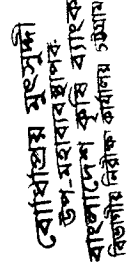 বোধিপ্রিয় মুৎসুদ্দী
উপ-মহাব্যবস্থাপক
বাংলাদেশ কৃষি ব্যাংক
বিভাগীয় নিরীক্ষা কার্যালয় চট্টগ্রাম